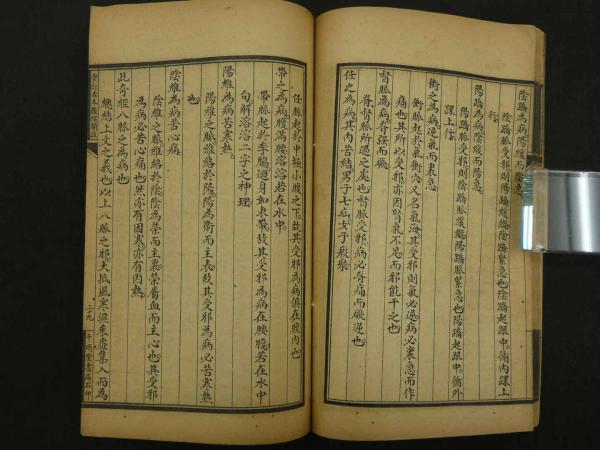 陰蹻為病陽緩而陰急
陰蹻脈受邪則陽蹻緩縱陰蹻緊急也陰蹻起跟中循內踝上
行
陽蹻為病陰緩而陽急
陽蹻脈受邪則陰蹻脈緩縱陽蹻脈緊急也陽蹻起跟中循外
踝上行
衝之為病逆氣而裏急
衝脈起於氣衝穴又名氣海其受邪則氣必逆病必裏急而作
痛也其所以受邪亦因腎氣不足而邪能干之也
督脈為病脊強而厥
脊督脈所過之處也督脈受邪病必脊痛而厥逆也
任之為病其內苦結男子七疝女子瘕聚
任脈起於中極小腹之下故其受邪為病俱在腹內也
帶之為病腹滿腰溶溶若在水中
帶脈起於季脇迴身如束帶故其受邪為病在腰腹若在水中
句解溶溶二字之神理
陽維為病苦寒熱
陽維之脈維絡於陽陽為衛而主表故其受邪為病必苦寒熱
也
陰維為病苦心痛
陰維之脈維絡於陰陰為榮而主裏榮屬血而主心也其受邪
為病必苦心痛也然亦有因寒亦有因熱
此奇經八脈之為病也
總結上文之義也以上八脈之邪大抵風寒溫乘虛集入而為
二十九
千頃堂書局石印